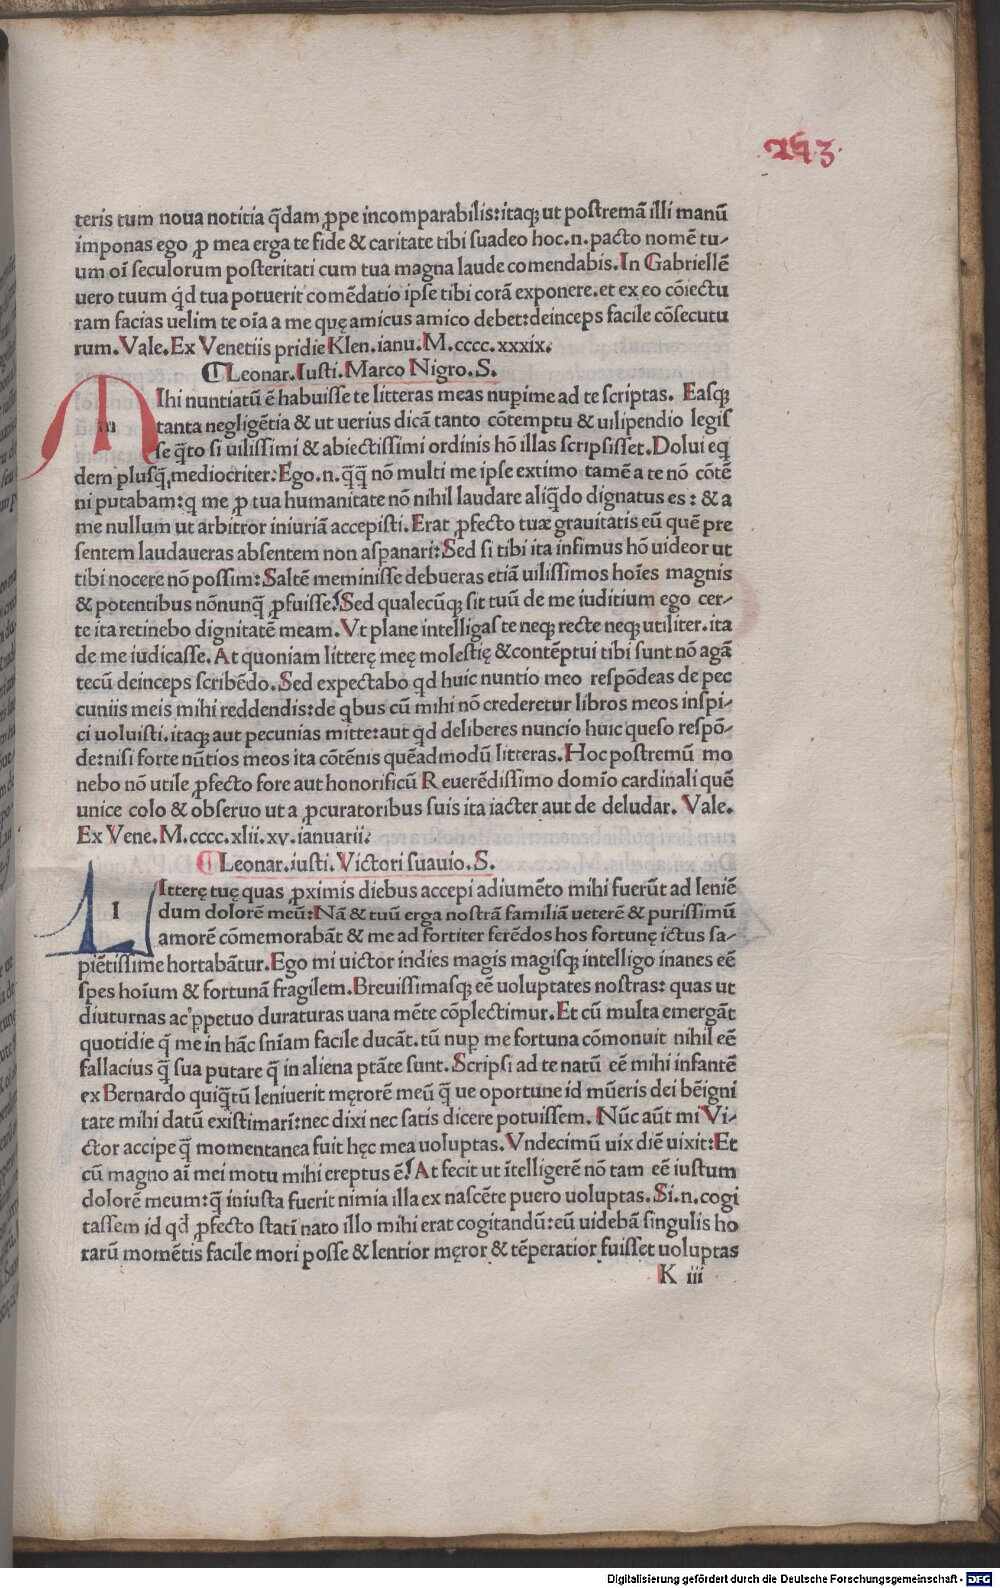 193.
teris tum noua notitia q̄dam ꝓpe incomparabilis:itaqꝫ ut postremā illi manū
imponas ego ꝓ mea erga te fide & caritate tibi suadeo hoc.n.pacto nomē tu-
um oī seculorum posteritati cum tua magna laude comendabis.In Gabriellē
uero tuum q̄d tua potuerit comēdatio ipse tibi corā exponere.et ex eo cōiectu
ram facias uelim te oīa a me quę amicus amico debet:deinceps facile cōsecutu
rum.Vale.Ex Venetiis pridie Klen.ianu.M.cccc.xxxix.
⸿Leonar.Iusti.Marco Nigro.S.
MIhi nuntiatū ē habuisse te litteras meas nupime ad te scriptas. Easqꝫ
tanta negligētia & ut uerius dicā tanto cōtemptu & uilipendio legis
se q̄to si uilissimi & abiectissimi ordinis hō illas scripsisset.Dolui eq
dem plusq̄ mediocriter:Ego.n.q̄q̄ nō multi me ipse extimo tamē a te nō cōtē
ni putabam:q me ꝓ tua humanitate nō nihil laudare aliq̄do dignatus es: & a
me nullum ut arbitror iniuriā accepisti.Erat ꝓfecto tuæ grauitatis eū quē pre
sentem laudaueras absentem non aspanari:Sed si tibi ita infimus hō uideor ut
tibi nocere nō possim:Saltē meminisse debueras etiā uilissimos hoīes magnis
& potentibus nōnunq̄ ꝓfuisse?Sed qualecūqꝫ sit tuū de me iuditium ego cer-
te ita retinebo dignitatē meam.Vt plane intelligas te neqꝫ recte neqꝫ utiliter.ita
de me iudicasse.At quoniam litterę meę molestię &contēptui tibi sunt nō agā
tecū deinceps scribēdo.Sed expectabo qd huic nuntio meo respōdeas de pec
cuniis meis mihi reddendis:de qbus cū mihi nō crederetur libros meos inspi-
ci uoluisti.itaqꝫ aut pecunias mitte:aut q̄d deliberes nuncio huic queso respō-
de:nisi forte nūtios meos ita cōtēnis quēadmodū litteras.Hoc postremū mo
nebo nō utile ꝓfecto fore aut honorificū Reuerēdissimo domīo cardinali quē
unice colo & obseruo ut a ꝓcuratoribus suis ita iacter aut de deludar. Vale.
Ex Vene.M.cccc.xlii.xv.ianuarii.
⸿Leonar.iusti.Victori suauio.S.
LItterę tuę quas ꝓximis diebus accepi adiumēto mihi fuerūt ad leniē
dum dolorē meū:Nā & tuū erga nostrā familiā ueterē & purissimū
amorē cōmemorabāt & me ad fortiter ferēdos hos fortunę ictus sa-
piētissime hortabātur.Ego mi uictor indies magis magisqꝫ intelligo inanes eē
spes hoīum & fortunā fragilem.Breuissimasqꝫ eē uoluptates nostras: quas ut
diuturnas ac ꝑpetuo duraturas uana mēte cōplectimur.Et cū multa emergāt
quotidie q̄ me in hāc sn̄iam facile ducāt.tū nup me fortuna cōmonuit nihil eē
fallacius q̄ sua putare q̄ in aliena ptāte sunt.Scripsi ad te natū eē mihi infantē
ex Bernardo quiq̄tū leniuerit męrorē meū q̄ ue oportune id mūeris dei bēigni
tate mihi datū existimari:nec dixi nec satis dicere potuissem. Nūc aūt mi Vi-
ctor accipe q̄ momentanea fuit hęc mea uoluptas.Vndecimū uix diē uixit:Et
cū magno aī mei motu mihi ereptus ē?At fecit ut ītelligerē nō tam eē iustum
dolorē meum:q̄ iniusta fuerit nimia illa ex nascēte puero uoluptas.Si.n.cogi
tassem id qd̄ ꝓfecto statī nato illo mihi erat cogitandū:eū uidebā singulis ho
rarū momētis facile mori posse & lentior męror & tēperatior fuisset uoluptas
K iii
Digitalisierung gefördert durch die Deutsche Forschungsgemeinschaft - DFG